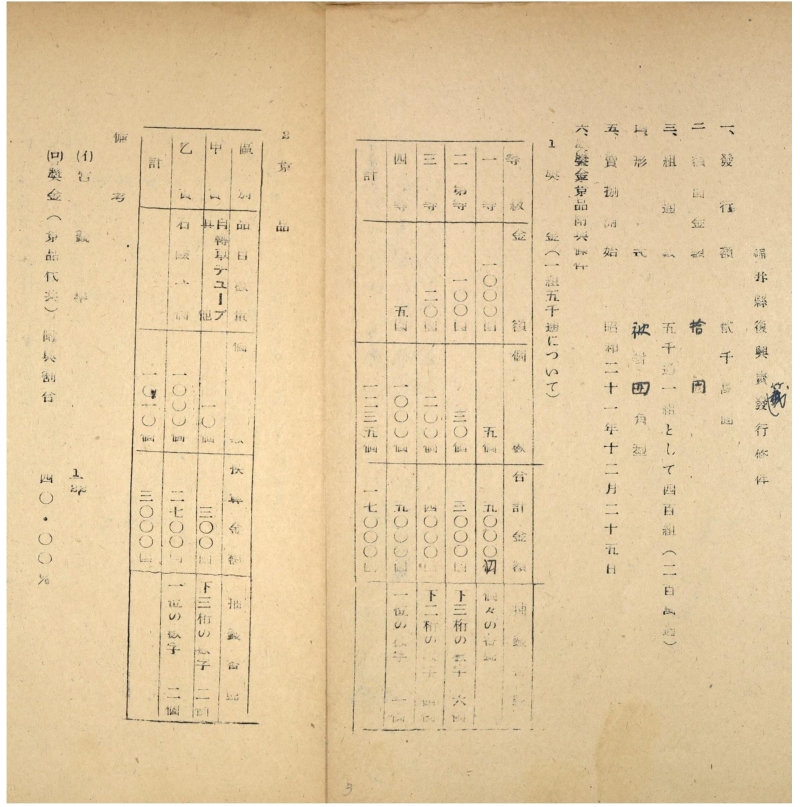 福井縣復興寶籤發行條件
一、發行額 貳千萬圓
二、額面金額 拾圓
三、組 五千通一組として四百組（二百萬通）
四、形式 四角型
五、賣捌開始 昭和二十一年十二月二十五日
六、獎金景品附與條件
1 獎金（一組五千通について）
等級 金額 個數 合計金額 抽籤番號
一等 一〇〇〇圓 五個 五〇〇〇圓 個々の番號
二等 一〇〇圓 三〇個 三〇〇〇圓 下三桁の數字 六個
三等 二〇圓 二〇〇個 四〇〇〇圓 下二桁の
四等 五圓 一〇〇〇個 五〇〇〇圓 一位の數字
計 一二三五個 一七〇〇〇圓
2 景品
區別 品目數量 個 換算金額 抽籤番號
甲賞 自轉車チューブ 其他 一〇個 三〇〇圓 下三桁の數字 二個
乙賞 石鹸 一〇〇〇個 二七〇〇圓 一位の數字 二個
計 一〇一〇個 三〇〇〇圓
備考
(イ)當籤率
(ロ)獎金（景品代共）附與割合 四〇・〇〇%